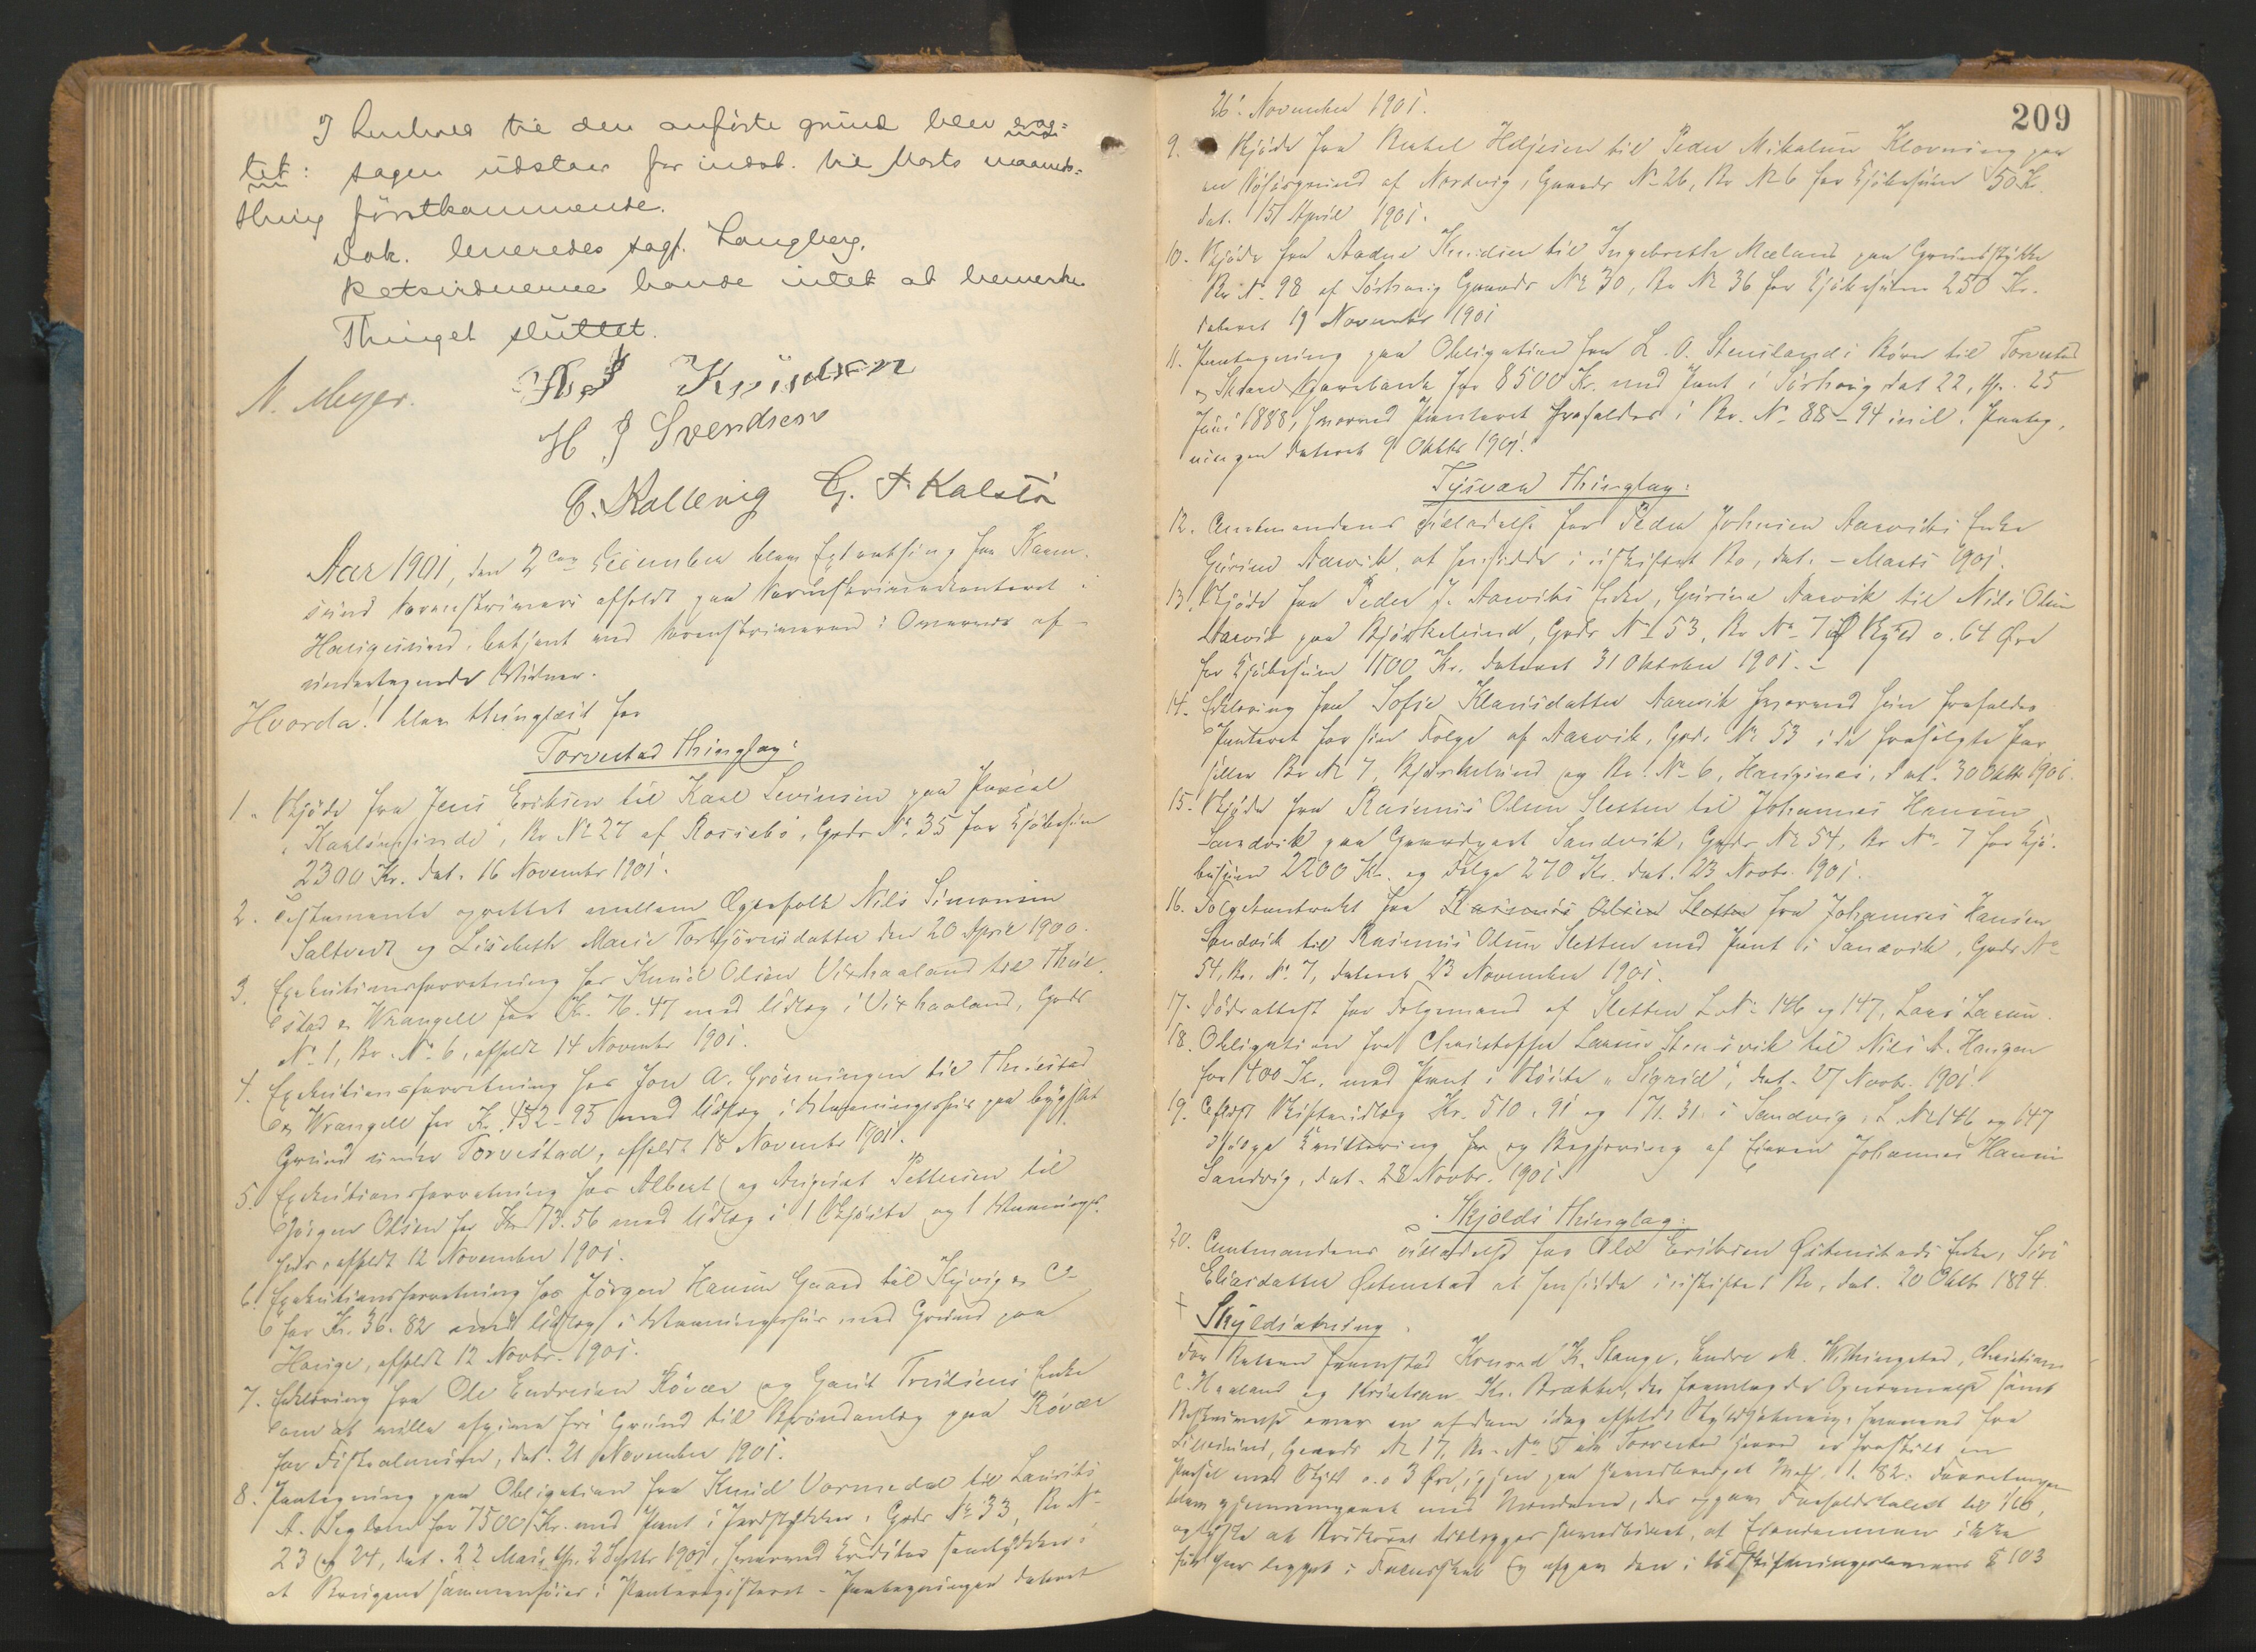 I henhold til den anførte grund blev erag-
tet: sagen udstaar for indst. til Marts maaneds-
thing førstkommende.
Dok. leveredes sagf. Langberg.
Retsvidnerne havde intet at bemerke
Thinget sluttet.
N. Meyer. Knudsen
H J Svendsen
C. Kallevig G. T Kalstø
Aar 1901, den 2den December blev Extrathing for Karm-
sund Sorenskriveri afholdt paa Sorenskriverkontoret i
Haugesund, betjent med Sorenskriveren i Overvær af
undertegnede Vidner.
Hvorda! blev thinglæst for
Torvestad thinglag:
1. Skjøde fra Jens Eriksen til Karl Sevinsen paa Parcel
"Karlsminde", Br No 27 af Rossebø, Gaards No 35 for Kjøbesum
2300 Kr. dat. 16 November 1901.
2. Testamente oprettet mellem Ægtefolk Nils Simonsen
Saltvedt og Lisebeth Marie Torbjørnsdatter den 20 April 1900.
3. Exekutionsforretning hos Knud Olsen Vixhaaland til Thue-
stad & Wrangell for Kr. 76.47 med Udlæg i Vixhaaland, Gaards
No 1, Br. No 6, afholdt 14 November 1901.
4. Exekutionsforretning hos Jon A. Grønningen til Thuestad
& Wrangell for Kr. 452-95 med Udlæg i Vaaningshus paa bygslet
Grund under Torvestad, afholdt 18 November 1901.
5. Exekutionsforretning hos Albert og August Pettersen til
Jørgen Olsen for Kr. 73.56 med Udlæg i 1 Skjøite og 1 Vaanings-
hus, afholdt 12 November 1901.
6. Exekutionsforretning hos Jørgen Hansen Gaard til
for Kr. 36.82 med Udlæg i Vaaningshus med Grund paa
Hauge, afholdt 12 Novbr. 1901.
7. Erklæring fra Ole Endresen Røvær og Gaut Enke
om at ville afgive fri Grund til Brøndanlæg paa Røvær
for Fiskealmuen, dat. 21 November 1901.
8. Paategning paa Obligation fra Knud Vormedal til Laurits
A. for 7500 Kr. med Pant i Jordstykker, Gaards No 33, Br No
23 og 24, dat. 22 Mai, th. 2 Septbr 1901, hvorved Kreditor samtykker i
at Brugene sammenføies i Panteregisteret - Paategningen dateret
209
26. November 1901.
9. Skjøde fra Helgesen til Peder Mikalsen Klovning paa
en Nøstgrund af Nordvig, Gaards No 26, Br No 6 for Kjøbesum 50 Kr.
dat. 15 April 1901.
10. Skjøde fra Aadne Knudsen til Ingebreth Mæland paa Grundstykke
Br No 98 af Sørhaug Gaards No 30, Br No 36 for Kjøbesum 250 Kr.
dateret 19 November 1901
11. Paategning paa Obligation fra L. O. Stensland i til Torvestad
og Skaare Sparebank for 8500 Kr. med Pant i Sørhaug dat 22, th. 25
Juni 1888, hvorved Panteret frafaldes i Br. No 88-94 incl. Paateg-
ningen dateret 9 Oktbr 1901.
Tysvær thinglag:
12. Amtmandens Tilladelse for Peder Johnsen Aarviks Enke
Gurine Aarvik, at hensidde i uskiftet Bo, dat. - Marts 1901.
13. Skjøde fra Peder J. Aarviks Enke, Gurine Aarvik til Nils Olsen
Aarvik paa Bjørkelund, Gaards No 53, Br No 7 af Skyld 0.64 Øre
for Kjøbesum 1100 Kr. dateret 31 Oktober 1901.
14. Erklæring fra Sofie Klausdatter Aarvik hvorved hun frafalder
Panteret for sin Følge af Aarvik, Gaards No 53 i de frasolgte Par-
seller Br No 7, Bjørkelund og Br. No 6, Haugenes, dat. 30 Oktbr 1901.
15. Skjøde fra Rasmus Olsen Sletten til Johannes Hansen
Sandvik paa Gaardpart Sandvik, Gaards No 54, Br No 7 for Kjø-
besum 2200 Kr. og Følge 270 Kr. dat. 23 Novbr. 1901.
16. Følgekontrakt fra Rasmus Olsen Sletten fra Johannes Hansen
Sandvik til Rasmus Olsen Sletten med Pant i Sandvik, Gaards No
54, Br. No 7, dateret 23 November 1901.
17. Dødsattest for Følgemand af Sletten L. No 146 og 147, Lars Larsen.
18. Obligation fra Christoffer Larsen Stensvik til Nils A. Haugen
for 1400 Kr. med Pant i Skøite "Sigrid", dat. 27 Novbr. 1901.
19. Aflyst Skifteudlæg Kr. 510.91 og 171.31 i Sandvig, L. No 146 og 147
ifølge Kvittering for og Begjæring af Eieren Johannes Hansen
Sandvig, dat. 28 Novbr. 1901.
Skjolds thinglag:
20. Amtmandens Tilladelse for Ole Eriksen Østenstads Enke, Siri
Eliasdatter Østenstad at hensidde i uskiftet Bo, dat. 20 Oktbr 1894.
Skyldsætning.
For Retten fremstod Konrad K. Stange, Endre M. Withingstad, Christian
C. Haaland og Kristian Kr. Brække, der fremlagde Opnævnelse samt
Beskrivelse over en af dem idag afholdt Skyldsætning, hvorved fra
Lillesund, Gaards No 17, Br. No 5 i Torvestad herred er fraskilt en
Parsel med Skyld 0.03 Øre, Forretningen
blev gjennemgaaet med Mændene, der opgav Forholdstallet til 1/66,
og lyste at
lagt i Fællesskab og afgav den i Udskiftningslovens § 103